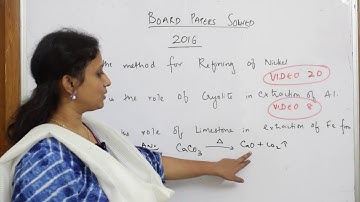 BOARD PAPERS SOLVED
2016
the method for Refining of Nickel
VIDEO 20
the role of Cryolite in extraction of Al.
VIDEO 8
role of Limestone in extraction of Fe from
Ans. CaCO3 Δ→ CaO + CO2↑